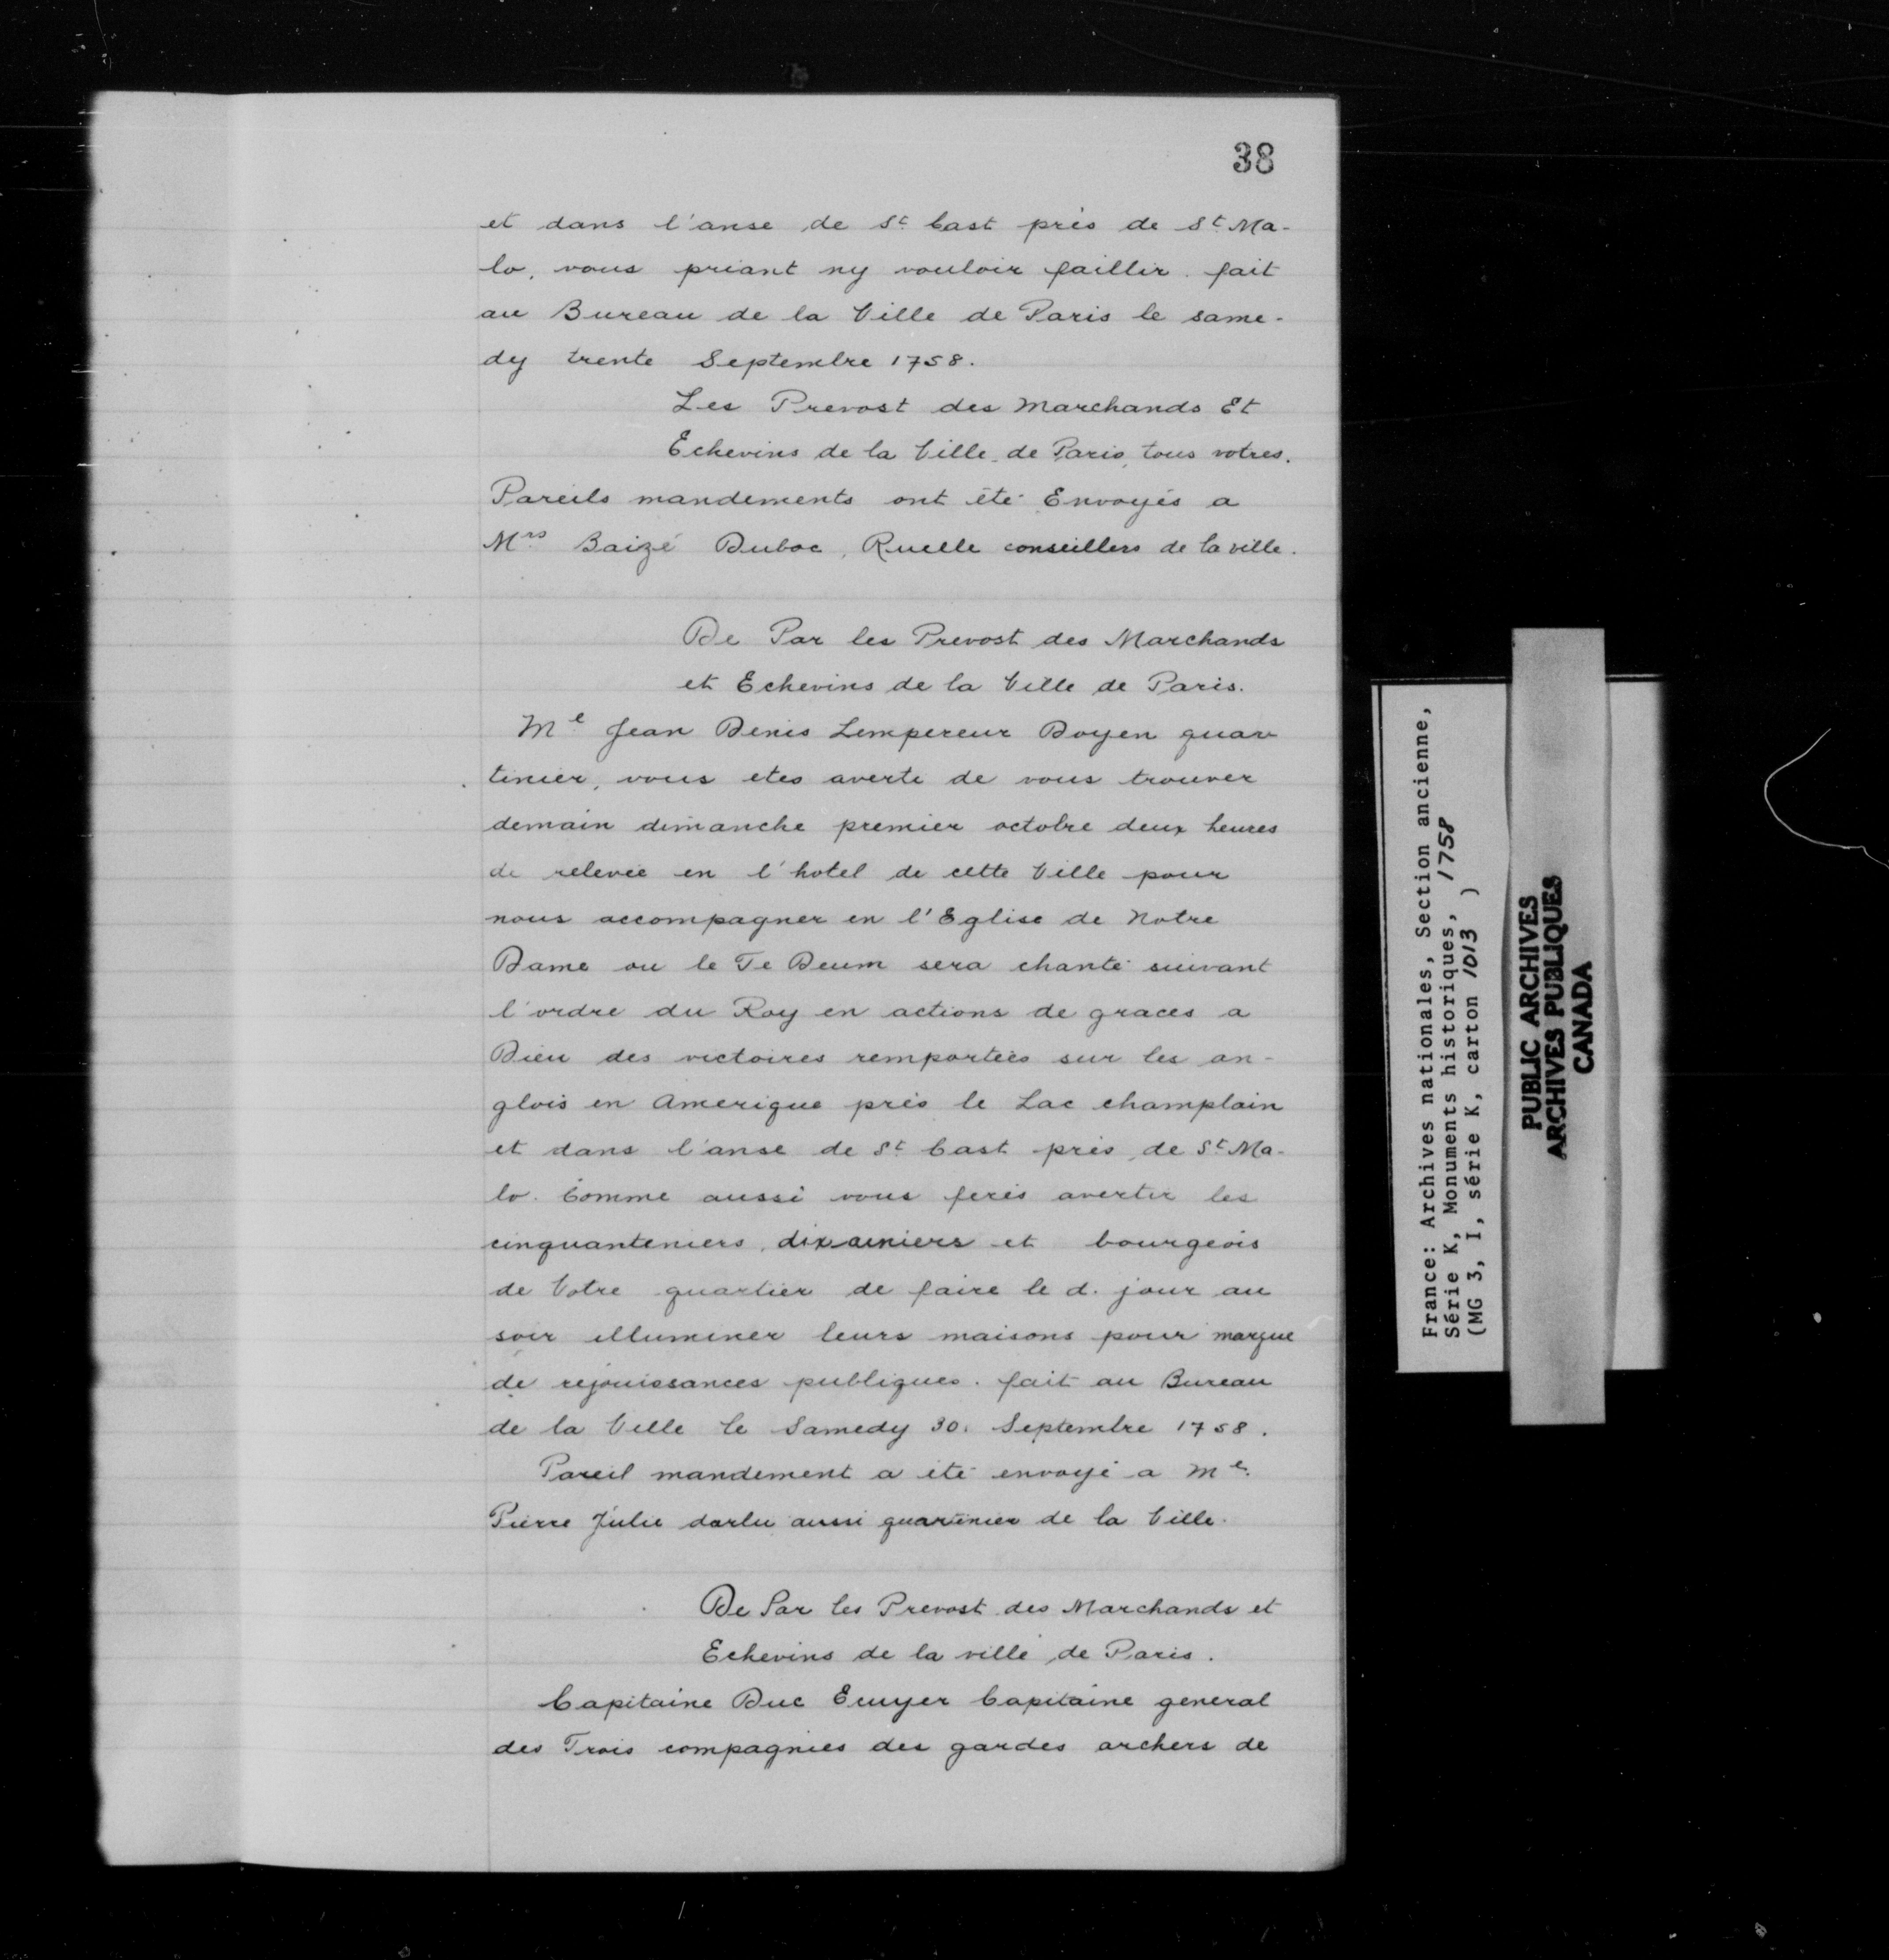 38
et dans l'anse de St Cast près de St Ma-
lo, vous priant ny vouloir faillir. fait
au Bureau de la Ville de Paris le same-
dy trente Septembre 1758.
Les Prevost des Marchands Et
Echevins de la Ville de Paris, tous votres.
Pareils mandements ont été Envoyés a
Mrs Baizé Duboc, Ruelle conseillers de la ville.
De Par les Prevost des Marchands
et Echevins de la Ville de Paris.
Me Jean Denis Lempereur Doyen quar
tinier, vous etes averti de vous trouver
demain dimanche premier octobre deux heures
de relevée en l'hotel de cette Ville pour
nous accompagner en l'Eglise de Notre
Dame ou le Te Deum sera chanté suivant
l'ordre du Roy en actions de graces a
Dieu des victoires remportées sur les an-
glois en Amerique près le Lac champlain
et dans l'anse de St Cast près de St Ma-
lo. Comme aussi vous ferés avertir les
cinquanteniers, dixainiers et bourgeois
de Votre quartier de faire le d. jour au
soir illuminer leurs maisons pour marque
de rejouissances publiques. fait au Bureau
de la Ville le Samedy 30. Septembre 1758.
Pareil mandement a été envoyé a Me.
Pierre Julie darlu aussi quartinier de la Ville.
De Par les Prevost des Marchands et
Echevins de la ville de Paris.
Capitaine Duc Ecuyer Capitaine general
des Trois compagnies des gardes archers de
France: Archives nationales, Section ancienne,
Série K, Monuments historiques, 1758
(MG 3, I, série K, carton 1013 )
PUBLIC ARCHIVES
ARCHIVES PUBLIQUES
CANADA